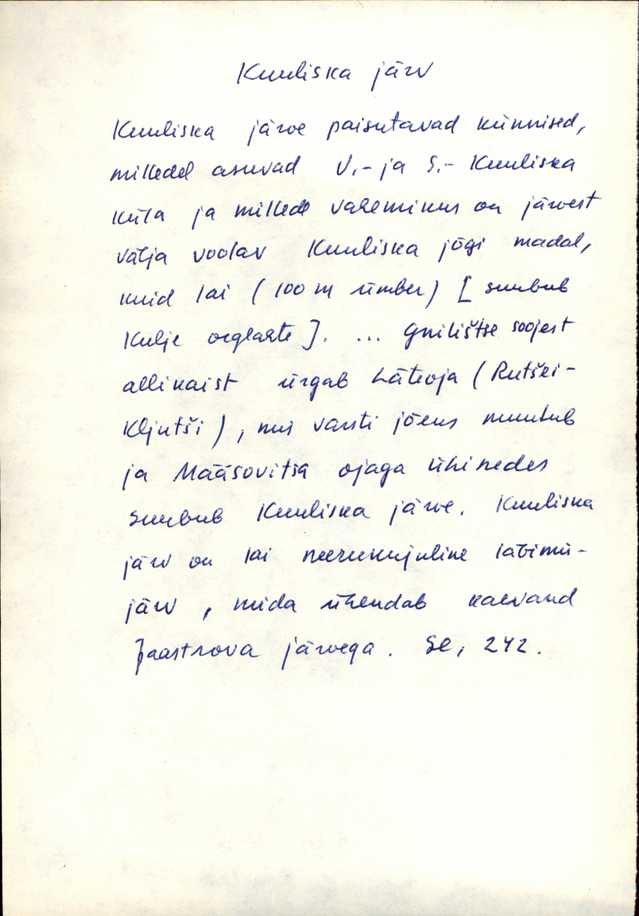 Kuuliska järv
Kuuliska järve paisutavad künnised,
milledel asuvad V.- ja S.- Kuuliska
küla ja millede vaheminus on järvest
välja voolav Kuuliska jõgi madal,
kuid lai (100 m ümber) [suubub
Kulje orglahte]. ... Gnilištše soojest
allikaist ürgab Läteoja (Rutšei-
Kljutši), mis varsti jõeks muutub
ja Määsovitsa ojaga ühinedes
suubub Kuuliska järve. Kuuliska
järv on lai neerukujuline läbimü-
järv, mida ühendab kaevand
Jaastrova järvega. Se, 242.